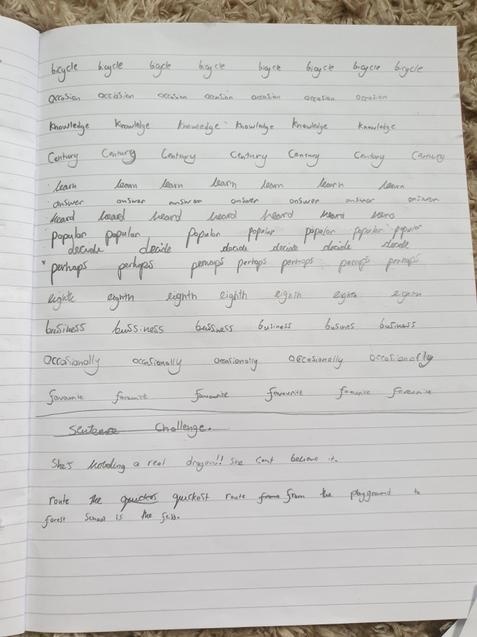 bicycle bicycle bicycle bicycle bicycle bicycle bicycle bicycle
occasion occasion occasion occasion occasion occasion
Knowledge Knowledge Knowledge Knowledge Knowledge Knowledge
Century Century Century Century Century Century Century
learn learn learn learn learn learn learn
answer answer answer answer answer answer answer
heard heard heard heard heard heard
popular popular popular popular popular popular popular
decide decide decide decide decide decide
perhaps perhaps perhaps perhaps perhaps perhaps perhaps
eighth eighth eighth eighth eighth eighth
business business business business business
Occasionally occasionally occasionally occasionally occasionally
favourite favourite favourite favourite favourite favourite
Sentence Challenge.
She's holding a real dragon!! She cant believe it.
route the quickest route from the playground to
forest School is the